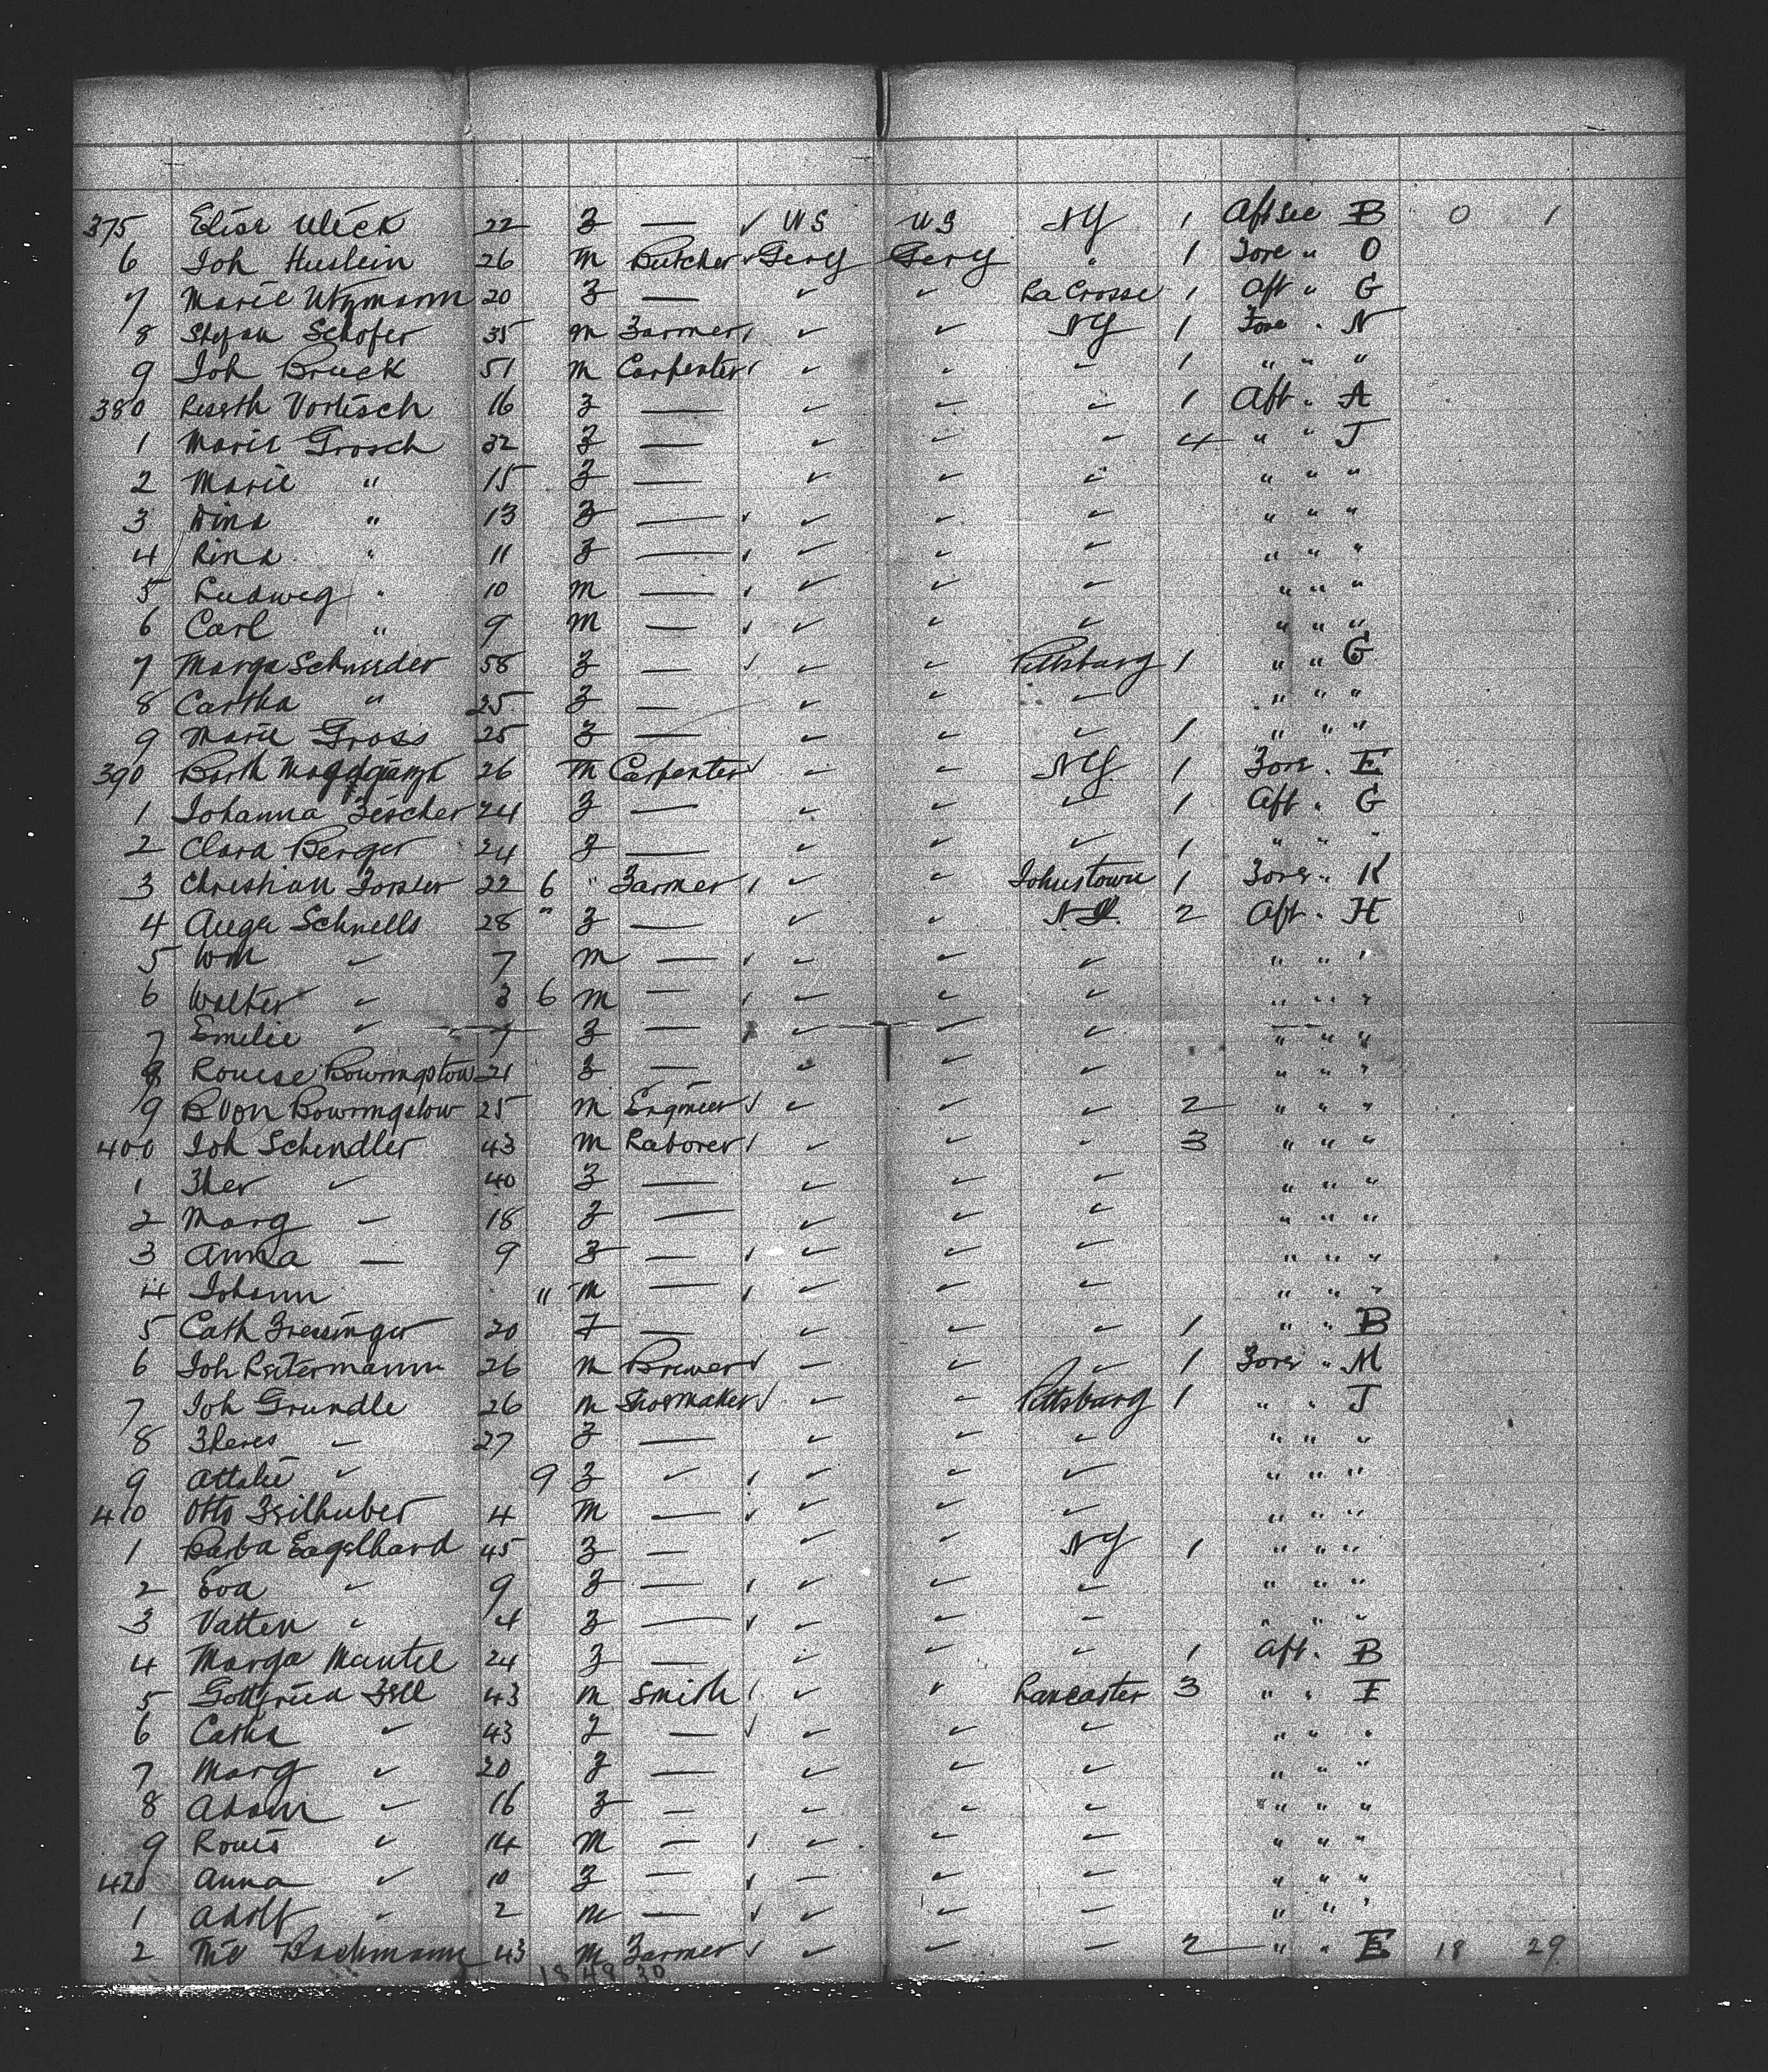 375 Elise Ulrick 22 F — ✓ U S U S NY 1 Aft See B 0 1
6 Joh Huslein 26 M Butcher ✓ Gery Gery " 1 Fore " O
7 Marie Utzmann 20 F — ✓ ✓ La Crosse 1 Aft " G
8 Stefan Schofer 35 M Farmer ✓ ✓ NY 1 Fore " N
9 Joh Bruck 51 M Carpenter ✓ ✓ ✓ 1 " " "
380 Vortisch 16 F — ✓ ✓ ✓ 1 Aft " A
1 Marie Grosch 32 F — ✓ ✓ ✓ 4 " " J
2 Marie " 15 F — ✓ ✓ ✓ " " "
3 Dina " 13 F — ✓ ✓ ✓ ✓ " " "
4 Lina " 11 F — ✓ ✓ ✓ ✓ " " "
5 Ludweg " 10 M — ✓ ✓ ✓ ✓ " " "
6 Carl " 9 M — ✓ ✓ ✓ ✓ " " "
7 Marga Schneider 58 F — ✓ ✓ ✓ Pittsburg 1 " " G
8 Cartha " 25 F — ✓ ✓ ✓ " " "
9 Marie Gross 25 F — ✓ ✓ ✓ 1 " " "
390 Barth 26 M Carpenter ✓ ✓ ✓ NY 1 Fore " E
1 Johanna Fescher 24 F — ✓ ✓ ✓ 1 Aft " G
2 Clara Berger 24 F — ✓ ✓ ✓ 1 " " "
3 Christian Forster 22 6 " Farmer ✓ ✓ Johnstown 1 Fore " K
4 Auga Schnells 28 " F — ✓ ✓ N.Y. 2 Aft " H
5 Wm ✓ 7 M — ✓ ✓ ✓ ✓ " " "
6 Walter ✓ 3 6 M — ✓ ✓ ✓ " " "
7 Emilie ✓ 7 F — ✓ ✓ ✓ " " "
8 Louise Bowringstow 21 F — ✓ ✓ ✓ " " "
9 B Von Bowringslow 25 M Engineer ✓ ✓ ✓ ✓ 2 " " "
400 Joh Schendler 43 M Laborer ✓ ✓ ✓ 3 " " "
1 Ther ✓ 40 F — ✓ ✓ ✓ " " "
2 Marg — 18 F — ✓ ✓ ✓ " " "
3 Anna — 9 F — ✓ ✓ ✓ ✓ " " "
4 Johann " M — ✓ ✓ ✓ ✓ " " "
5 Cath Fressinger 20 F — ✓ ✓ ✓ 1 " " B
6 Joh Reitermann 26 M Brewer ✓ — ✓ ✓ 1 Fore " M
7 Joh Grundle 26 M Shoemaker ✓ ✓ Pittsburg 1 " " J
8 Theres ✓ 27 F — ✓ ✓ ✓ " " "
9 Attalie ✓ 9 F ✓ ✓ ✓ ✓ ✓ " " "
410 Otto Feilhuber 4 M — ✓ ✓ ✓ ✓ " " "
1 Barba Engelhard 45 F — ✓ ✓ NY 1 " " "
2 Eva ✓ 9 F — ✓ ✓ ✓ ✓ " " "
3 Vatten ✓ 4 F — ✓ ✓ ✓ ✓ " " "
4 Marga Mantel 24 F — ✓ ✓ ✓ 1 Aft " B
5 Gottfried Fell 43 M Smith ✓ ✓ Lancaster 3 " " I
6 Catha ✓ 43 F — ✓ ✓ ✓ ✓ " " "
7 Marg ✓ 20 F — ✓ ✓ ✓ " " "
8 Adam ✓ 16 F — ✓ ✓ ✓ " " "
9 Louis ✓ 14 M — ✓ ✓ ✓ ✓ " " "
420 Anna ✓ 10 F — ✓ — ✓ ✓ " " "
1 Adolf ✓ 2 M — ✓ ✓ ✓ ✓ " " "
2 Bachmann 43 M Farmer ✓ ✓ — — 2 " " E 18 29
18 48 30